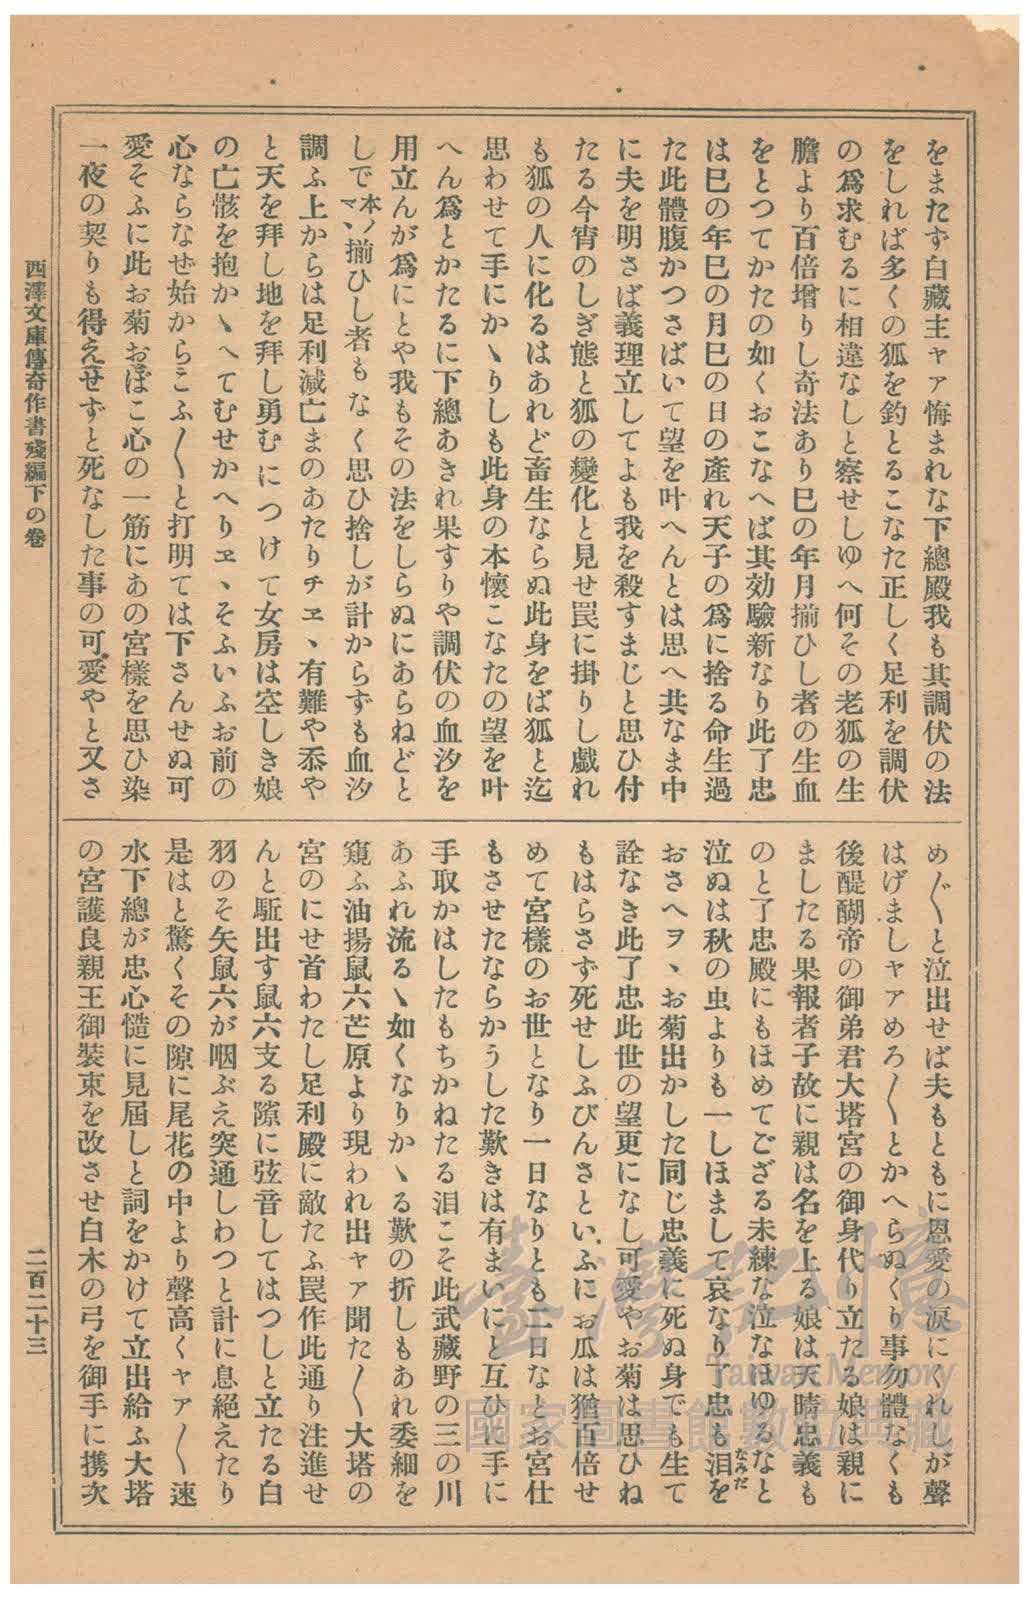 をまたず白藏主ャァ悔まれな下總殿我も其調伏の法
をしれば多くの狐を釣とるこなた正しく足利を調伏
の爲求むるに相違なしと察せしゆへ何その老狐の生
膽より百倍增りし奇法あり巳の年月揃ひし者の生血
をとつてかたの如くおこなへば其効驗新なり此了忠
は巳の年巳の月巳の日の產れ天子の爲に捨る命生過
た此體腹かつさばいて望を叶へんとは思へ共なま中
に夫を明さば義理立してよも我を殺すまじと思ひ付
たる今宵のしぎ態と狐の變化と見せ罠に掛りし戯れ
も狐の人に化るはあれど畜生ならぬ此身をば狐と迄
思わせて手にかゝりしも此身の本懷こなたの望を叶
へん爲とかたるに下總あきれ果すりや調伏の血汐を
用立んが爲にとや我もその法をしらぬにあらねどと
しで本ノマヽ揃ひし者もなく思ひ捨しが計からずも血汐
調ふ上からは足利減亡まのあたりチヱヽ有難や忝や
と天を拜し地を拜し勇むにつけて女房は空しき娘
の亡骸を抱かゝへてむせかへりヱヽそふいふお前の
心ならなぜ始からこふ〳〵と打明ては下さんせぬ可
愛そふに此お菊おぼこ心の一筋にあの宮樣を思ひ染
一夜の契りも得えせずと死なした事の可愛やと又さ
めぐ〳〵と泣出せば夫もともに恩愛の涙にくれしが聲
はげましャァめろ〳〵とかへらぬくり事勿體なくも
後醍醐帝の御弟君大塔宮の御身代り立たる娘は親に
ましたる果報者子故に親は名を上る娘は天晴忠義も
のと了忠殿にもほめてござる未練な泣なほゆるなと
泣ぬは秋の虫よりも一しほまして哀なり了忠も泪なみだを
おさへヲヽお菊出かした同じ忠義に死ぬ身でも生て
詮なき此了忠此世の望更になし可愛やお菊は思ひね
もはらさず死せしふびんさといふにお瓜は猶百倍せ
めて宮樣のお世となり一日なりとも二日なとお宮仕
もさせたならかうした歎きは有まいにと互ひに手に
手取かはしたもちかねたる泪こそ此武藏野の三の川
あふれ流るゝ如くなりかゝる歎の折しもあれ委細を
窺ふ油揚鼠六芒原より現われ出ャァ聞た〳〵大塔の
宮のにせ首わたし足利殿に敵たふ罠作此通り注進せ
んと駈出す鼠六支る隙に弦音してはつしと立たる白
羽のそ矢鼠六が咽ぶえ突通しわつと計に息絕えたり
是はと驚くその隙に尾花の中より聲高くャァ〳〵速
水下總が忠心慥に見屆しと詞をかけて立出給ふ大塔
の宮護良親王御裝束を改させ白木の弓を御手に携次
西澤文庫傳奇作書殘編下の卷
二百二十三
臺灣記憶
Taiwan Memory
國家圖書館數位典藏